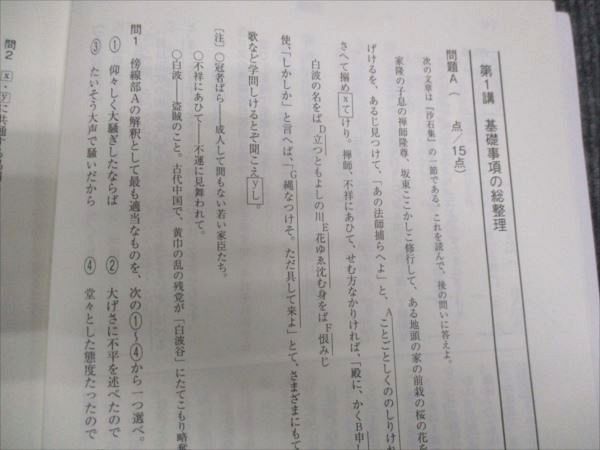 第1講 基礎事項の総整理
問題A （ 点／15点）
次の文章は『沙石集』の一節である。これを読んで、後の問いに答えよ。
家隆の子息の禅師隆尊、坂東ここかしこ修行して、ある地頭の家の前栽の桜の花を
げけるを、あるじ見つけて、「あの法師捕らへよ」と、Aことごとしくののしりけ
さへて搦めxてけり。禅師、不祥にあひて、せむ方なかりければ、「殿に、かくB申し
白波の名をばD立つともよしの川E花ゆゑ沈む身をばF恨みじ
使、「しかしか」と言へば、「G縄なつけそ。ただ具して来よ」とて、さまざまにもて
歌など学問しけるとぞ聞こえyし。
〔注〕○冠者ばら――成人して間もない若い家臣たち。
○不祥にあひて――不運に見舞われて。
○白波――盗賊のこと。古代中国で、黄巾の乱の残党が「白波谷」にたてこもり略奪
問1 傍線部Aの解釈として最も適当なものを、次の①～④から一つ選べ。
① 仰々しく大騒ぎしたならば
② 大げさに不平を述べたので
③ たいそう大声で騒いだから
④ 堂々とした態度たったので
問2 x・yに共通する